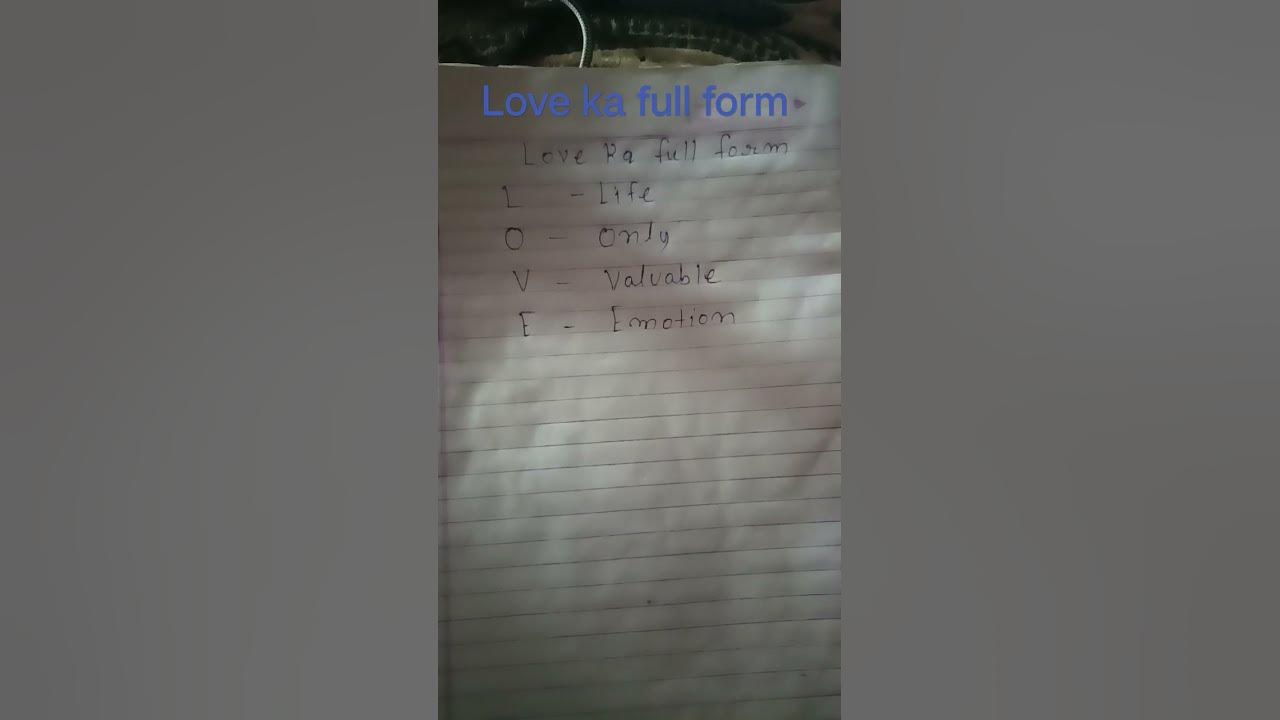 Love ka full form
Love ka full form
L - Life
O - Only
V - Valuable
E - Emotion